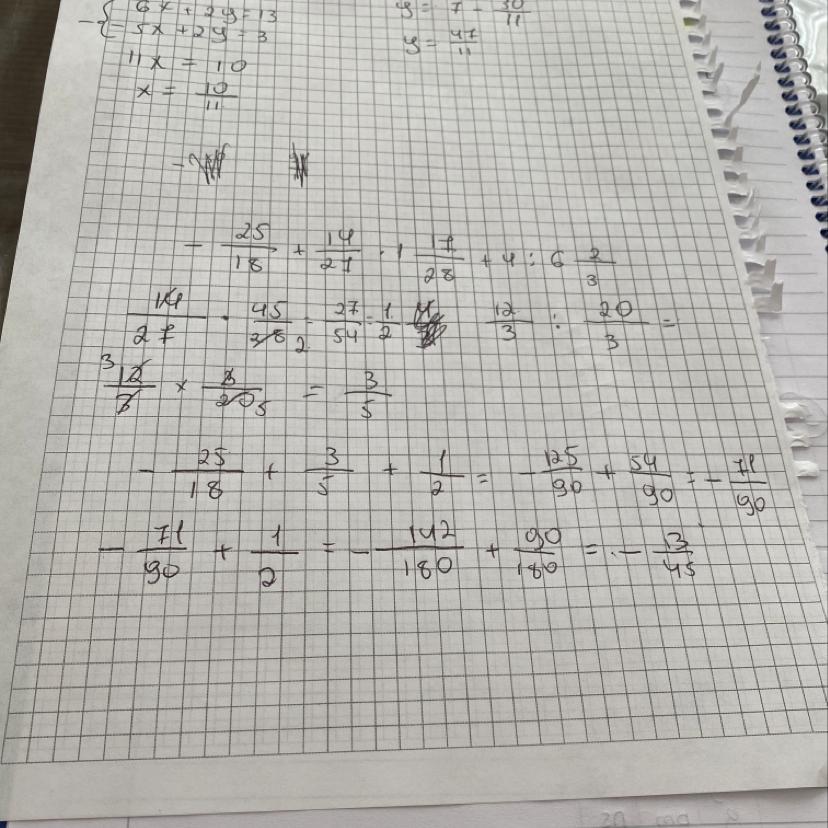 6x + 2y = 13
-{ = 5x + 2y = 3
11x = 10
x = 10/11
y = 7 - 30/11
y = 47/11
- 25/18 + 14/27 · 1 17/28 + 4 : 6 2/3
14/27 · 45/28 2 = 27/54 = 1/2 12/3 : 20/3 =
3 12/3 × 3/20 5 = 3/5
- 25/18 + 3/5 + 1/2 = - 125/90 + 54/90 = - 71/90
- 71/90 + 1/2 = - 142/180 + 90/180 = - 13/45